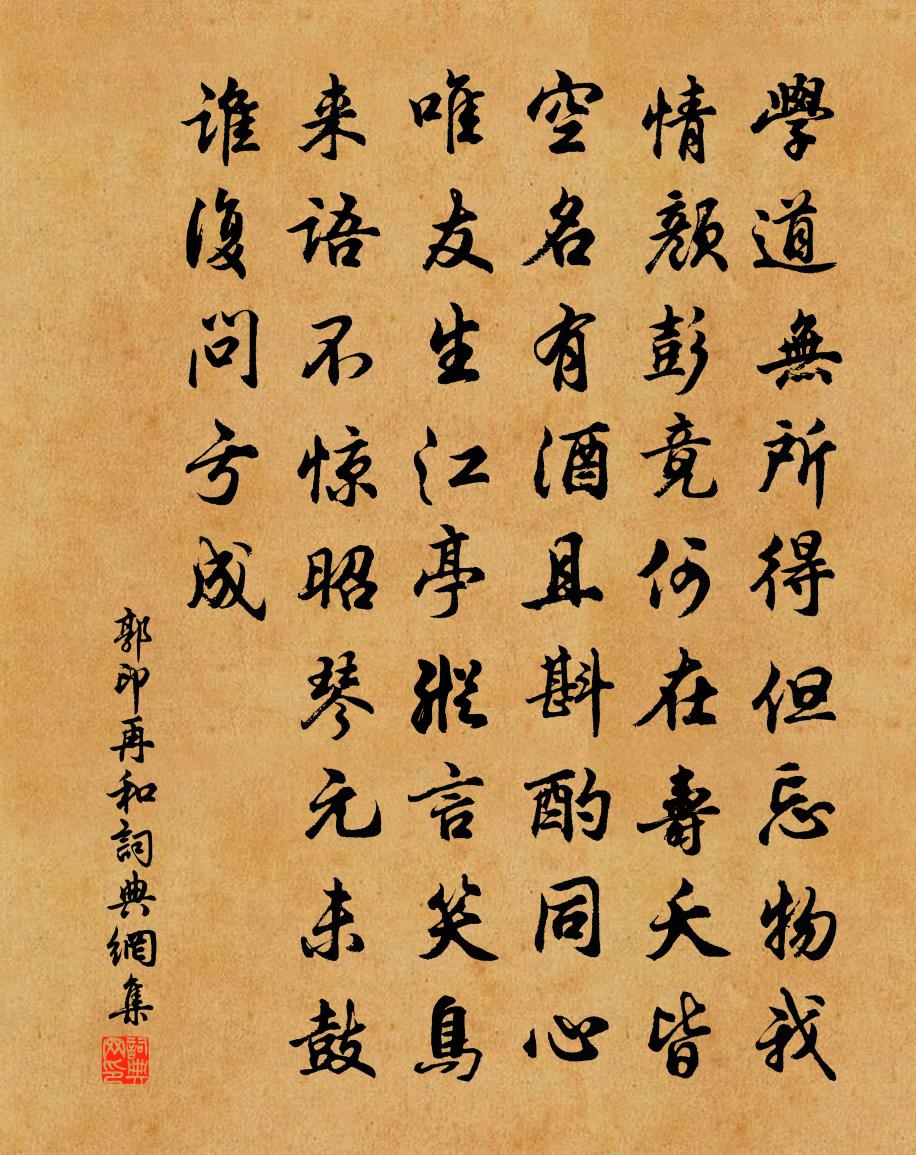 學道無所得但忘物我
情顏彭竟何在壽夭皆
空名有酒且斟酌同心
唯友生江亭縱言笑鳥
来語不惊昭琴元未鼓
誰復問亏成
郭印再和詞典網集
詞典网印